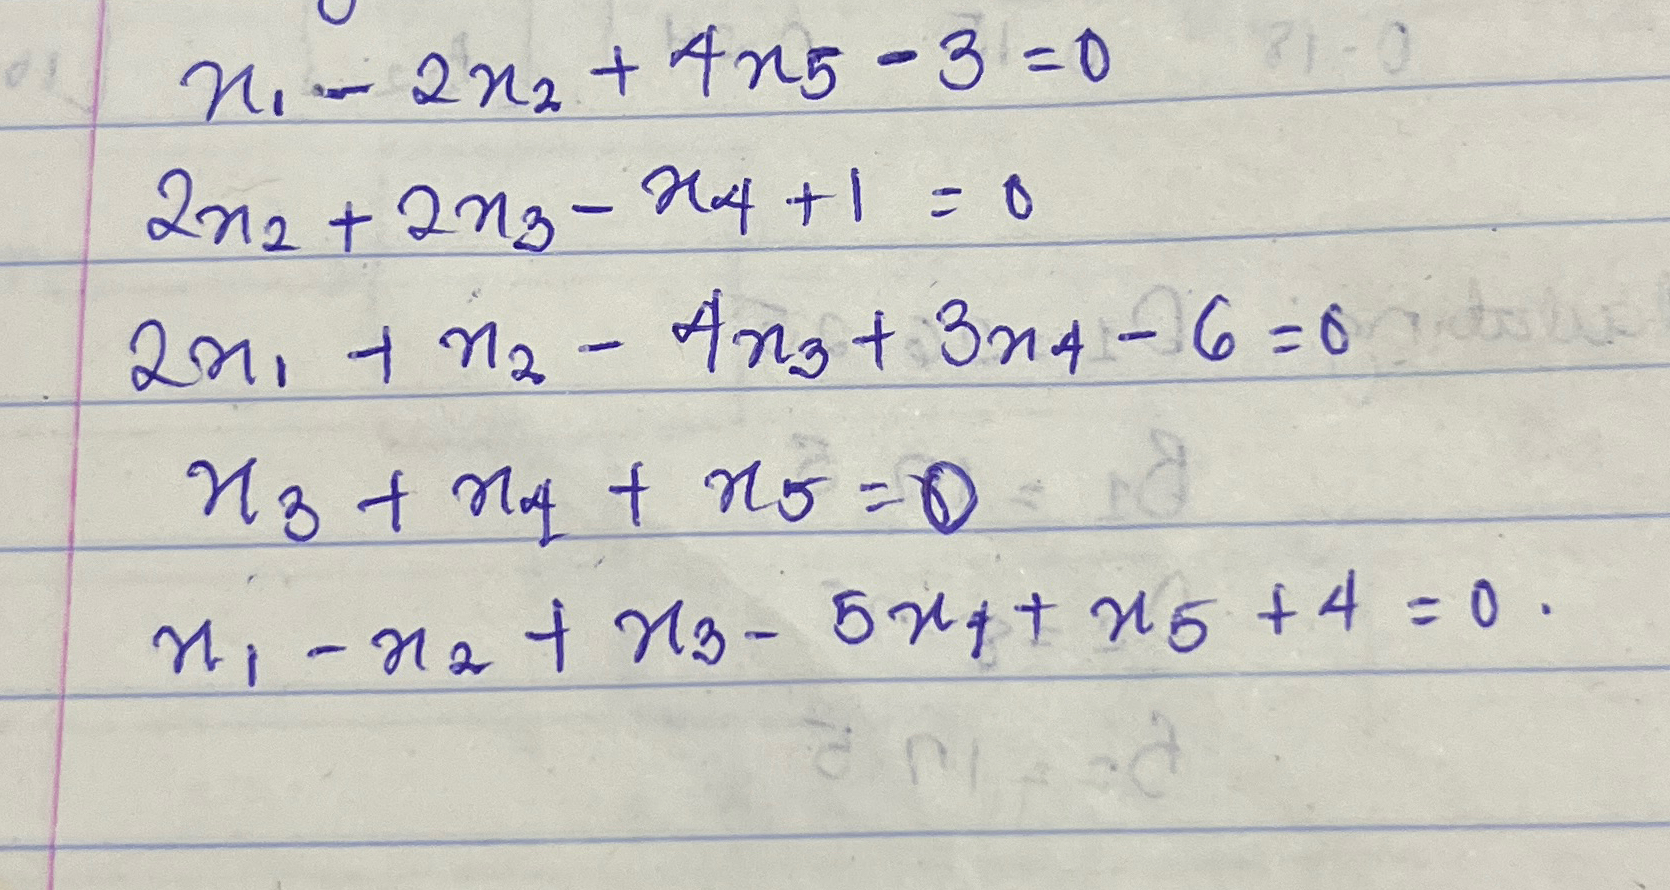 x₁ - 2x₂ + 4x₅ - 3 = 0
2x₂ + 2x₃ - x₄ + 1 = 0
2x₁ + x₂ - 4x₃ + 3x₄ - 6 = 0
x₃ + x₄ + x₅ = 0
x₁ - x₂ + x₃ - 5x₄ + x₅ + 4 = 0.